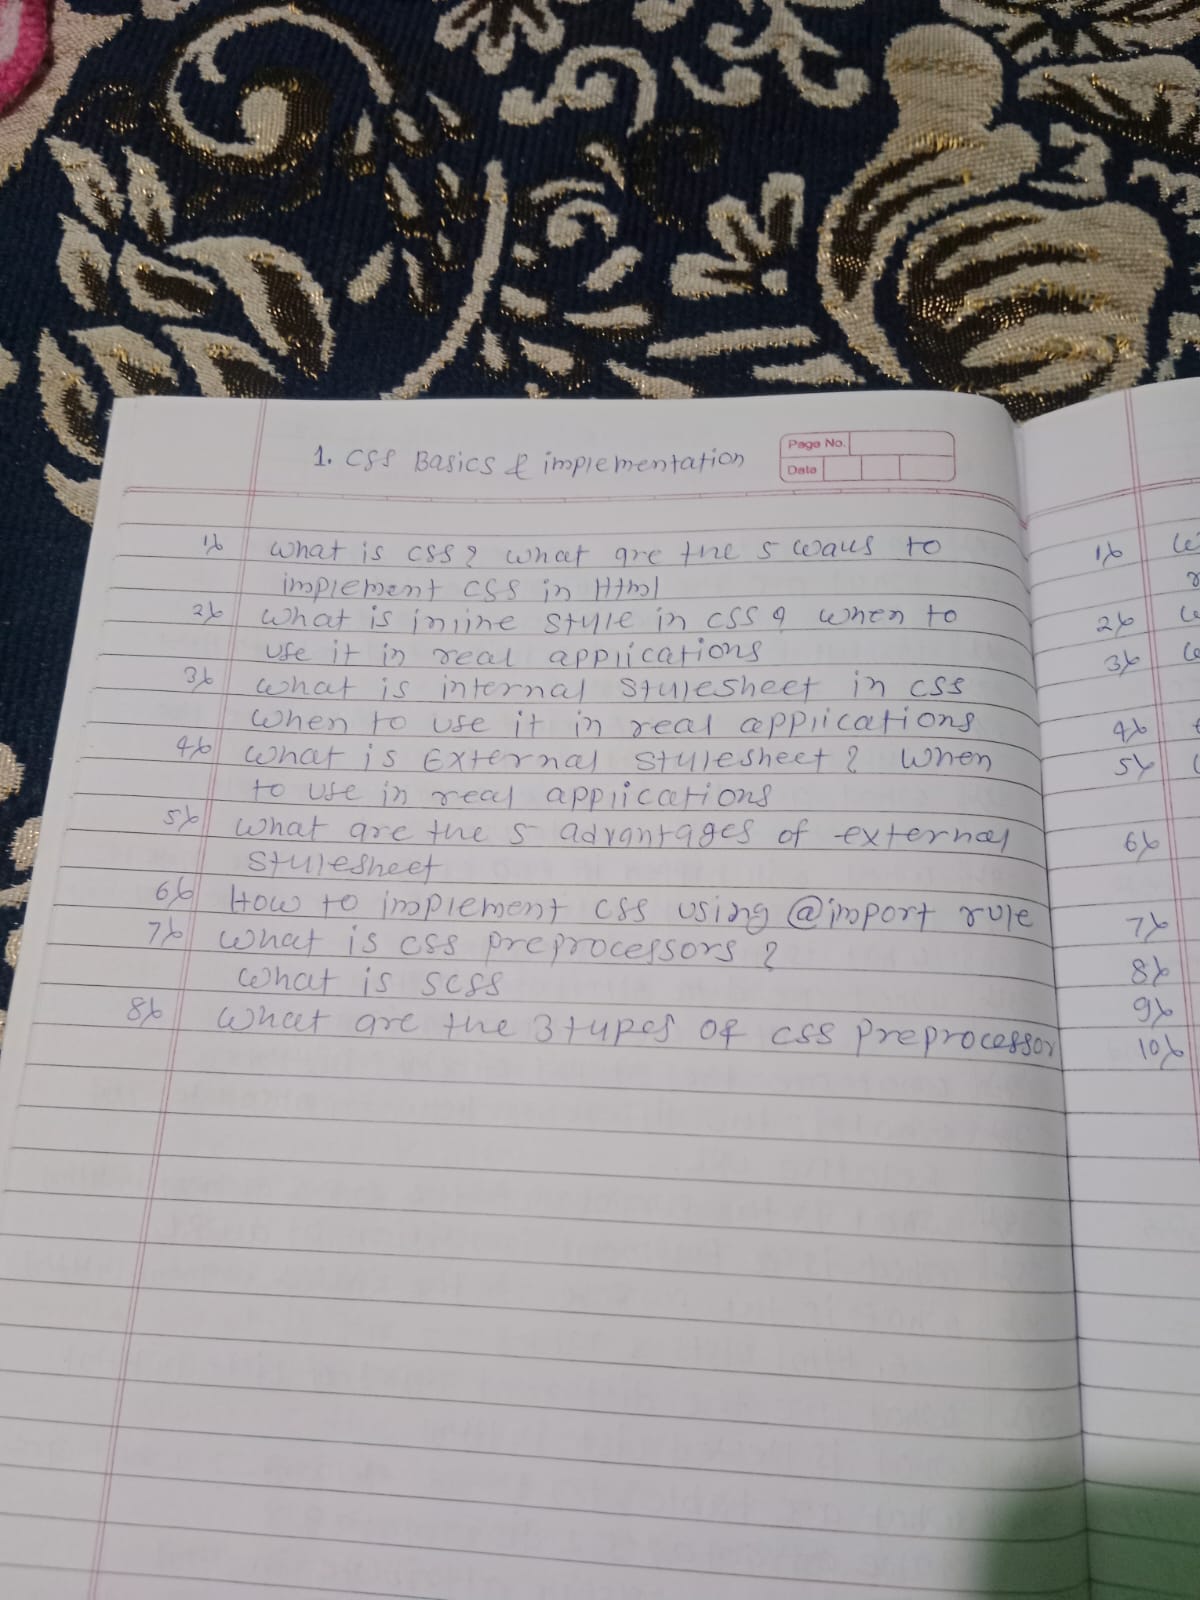 1. CSS Basics & implementation
Page No.
Date
1) what is css? what are the 5 ways to
implement css in Html
2) what is inline style in css? when to
use it in real applications
3) what is internal stylesheet in css
when to use it in real applications
4) what is External stylesheet? when
to use in real applications
5) what are the 5 advantages of external
stylesheet
6) How to implement css using @import rule
7) what is css preprocessors?
what is scss
8) what are the 3 types of css preprocessor
1)
2)
3)
4)
5)
6)
7)
8)
9)
10)